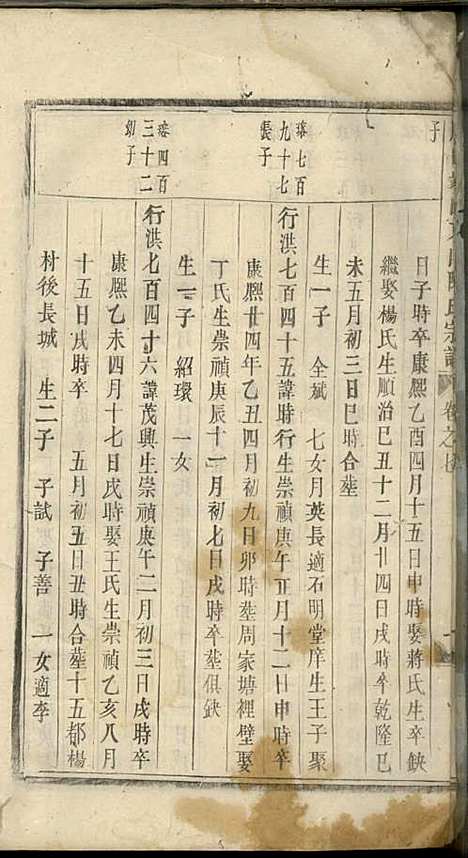 子
日子時卒康熙乙酉四月十五日申時娶蔣氏生卒缺
繼娶楊氏生順治己丑十二月廿四日戌時卒乾隆己
未五月初三日巳時合塟
生一子 全斌 七女月英長適石明堂庠生王子聚
瑧七百
九十七
長子
行洪七百四十五諱時行生崇禎庚午正月十二日申時卒
康熙廿四年乙丑四月初九日卯時塟周家塘裡壁娶
丁氏生崇禎庚辰十一月初七日戌時卒塟俱缺
生一子 紹環 一女
瑧四百
三十二
幼子
行洪七百四十六諱茂興生崇禎庚午二月初三日戌時卒
康熙乙未四月十七日戌時娶王氏生崇禎乙亥八月
十五日戌時卒 五月初五日丑時合塟十五都楊
村後長城 生二子 子試 子善 一女適李
氏宗譜
卷之